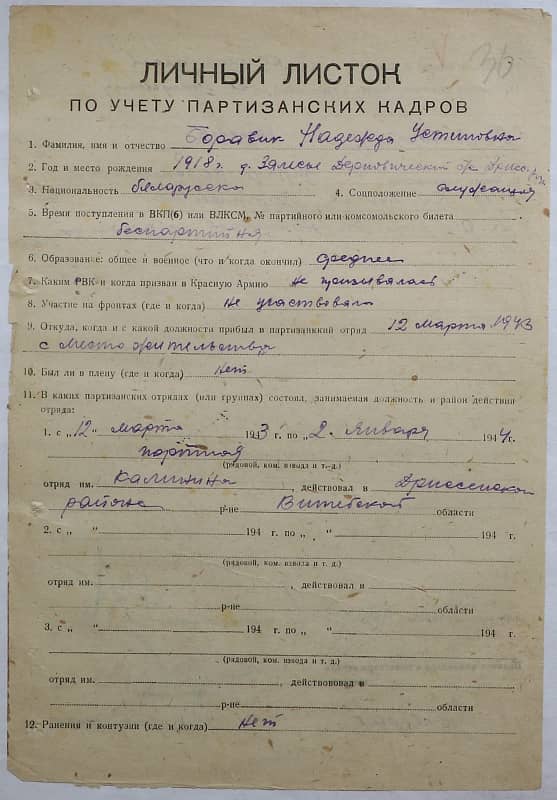 36
ЛИЧНЫЙ ЛИСТОК
ПО УЧЕТУ ПАРТИЗАНСКИХ КАДРОВ
1. Фамилия, имя и отчество Боравик Надежда Устиновна
2. Год и место рождения 1918 г. д. Залесье Дерновический с/с Дрисс.
3. Национальность белорусска 4. Соцположение служащая
5. Время поступления в ВКП(б) или ВЛКСМ, № партийного или комсомольского билета
беспартийная
6. Образование: общее и военное (что и когда окончил) среднее
7. Каким РВК и когда призван в Красную Армию не призывалась
8. Участие на фронтах (где и когда) не участвовала
9. Откуда, когда и с какой должности прибыл в партизанкий отряд 12 марта 1943
с место жительства
10. Был ли в плену (где и когда) нет
11. В каких партизанских отрядах (или группах) состоял, занимаемая должность и район действия
отряда:
1. с „12 марта 1943 г. по „2. января 1944 г.
портная
(рядовой, ком. взвода и т.-д.)
отряд им. Калинина, действовал в Дриссенском
районе р-не Витебской области
2. с „ “ 194 г. по „ “ 194 г.
(рядовой, ком. взвода и т. д.)
отряд им. , действовал в
р-не области
3. с „ “ 194 г. по „ “ 194 г.
(рядовой, ком. взвода и т. д.)
отряд им. , действововал в
р-не области
12. Ранения и контузии (где и когда) нет